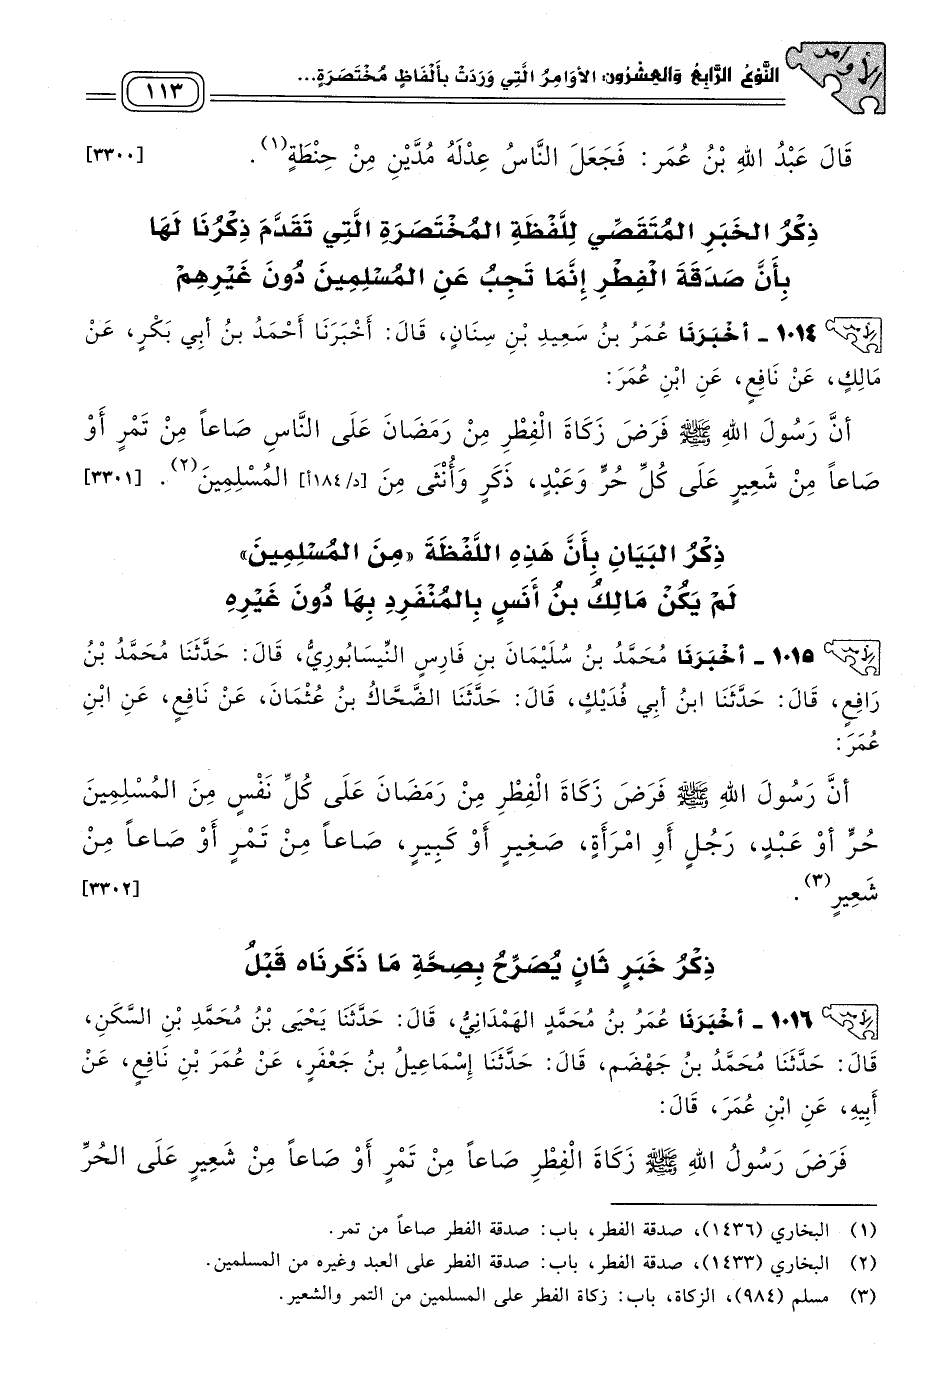 الأوامر
النَّوْعُ الرَّابِعُ وَالعِشْرُونَ: الأَوَامِرُ الَّتِي وَرَدَتْ بِأَلْفَاظٍ مُخْتَصَرَةٍ...
١١٣
قَالَ عَبْدُ اللهِ بْنُ عُمَر: فَجَعَلَ النَّاسُ عِدْلَهُ مُدَّيْنِ مِنْ حِنْطَةٍ(١). [٣٣٠٠]
ذِكْرُ الخَبَرِ المُتَقَصِّي لِلَّفْظَةِ المُخْتَصَرَةِ الَّتِي تَقَدَّمَ ذِكْرُنَا لَهَا
بِأَنَّ صَدَقَةَ الْفِطْرِ إِنَّمَا تَجِبُ عَنِ المُسْلِمِينَ دُونَ غَيْرِهِمْ
١٠١٤ - أَخْبَرَنَا عُمَرُ بْنُ سَعِيدِ بْنِ سِنَانٍ، قَالَ: أَخْبَرَنَا أَحْمَدُ بنُ أبِي بَكْرٍ، عَنْ
مَالِكٍ، عَنْ نَافِعٍ، عَنِ ابْنِ عُمَرَ:
أنَّ رَسُولَ اللهِ ﷺ فَرَضَ زَكَاةَ الْفِطْرِ مِنْ رَمَضَانَ عَلَى النَّاسِ صَاعاً مِنْ تَمْرٍ أَوْ
صَاعاً مِنْ شَعِيرٍ عَلَى كُلِّ حُرٍّ وَعَبْدٍ، ذَكَرٍ وَأُنْثَى مِنَ [د/١٨٤أ] المُسْلِمِينَ(٢). [٣٣٠١]
ذِكْرُ البَيَانِ بِأَنَّ هَذِهِ اللَّفْظَةَ «مِنَ المُسْلِمِينَ»
لَمْ يَكُنْ مَالِكُ بنُ أَنَسٍ بِالمُنْفَرِدِ بِهَا دُونَ غَيْرِهِ
١٠١٥ - أَخْبَرَنَا مُحَمَّدُ بنُ سُلَيْمَانَ بنِ فَارِسٍ النَّيسَابُورِيُّ، قَالَ: حَدَّثَنَا مُحَمَّدُ بْنُ
رَافِعٍ، قَالَ: حَدَّثَنَا ابنُ أبِي فُدَيْكٍ، قَالَ: حَدَّثَنَا الضَّحَّاكُ بنُ عُثْمَانَ، عَنْ نَافِعٍ، عَنِ ابْنِ
عُمَرَ:
أنَّ رَسُولَ اللهِ ﷺ فَرَضَ زَكَاةَ الْفِطْرِ مِنْ رَمَضَانَ عَلَى كُلِّ نَفْسٍ مِنَ المُسْلِمِينَ
حُرٍّ أَوْ عَبْدٍ، رَجُلٍ أَوِ امْرَأَةٍ، صَغِيرٍ أَوْ كَبِيرٍ، صَاعاً مِنْ تَمْرٍ أَوْ صَاعاً مِنْ
شَعِيرٍ(٣). [٣٣٠٢]
ذِكْرُ خَبَرٍ ثَانٍ يُصَرِّحُ بِصِحَّةِ مَا ذَكَرنَاه قَبْلُ
١٠١٦ - أَخْبَرَنَا عُمَرُ بنُ مُحَمَّدٍ الهَمْدَانِيُّ، قَالَ: حَدَّثَنَا يَحْيَى بْنُ مُحَمَّدِ بْنِ السَّكَنِ،
قَالَ: حَدَّثَنَا مُحَمَّدُ بنُ جَهْضَم، قَالَ: حَدَّثَنَا إِسْمَاعِيلُ بنُ جَعْفَرٍ، عَنْ عُمَرَ بْنِ نَافِعٍ، عَنْ
أَبِيهِ، عَنِ ابْنِ عُمَرَ، قَالَ:
فَرَضَ رَسُولُ اللهِ ﷺ زَكَاةَ الْفِطْرِ صَاعاً مِنْ تَمْرٍ أَوْ صَاعاً مِنْ شَعِيرٍ عَلَى الحُرِّ
(١) البخاري (١٤٣٦)، صدقة الفطر، باب: صدقة الفطر صاعاً من تمر.
(٢) البخاري (١٤٣٣)، صدقة الفطر، باب: صدقة الفطر على العبد وغيره من المسلمين.
(٣) مسلم (٩٨٤)، الزكاة، باب: زكاة الفطر على المسلمين من التمر والشعير.